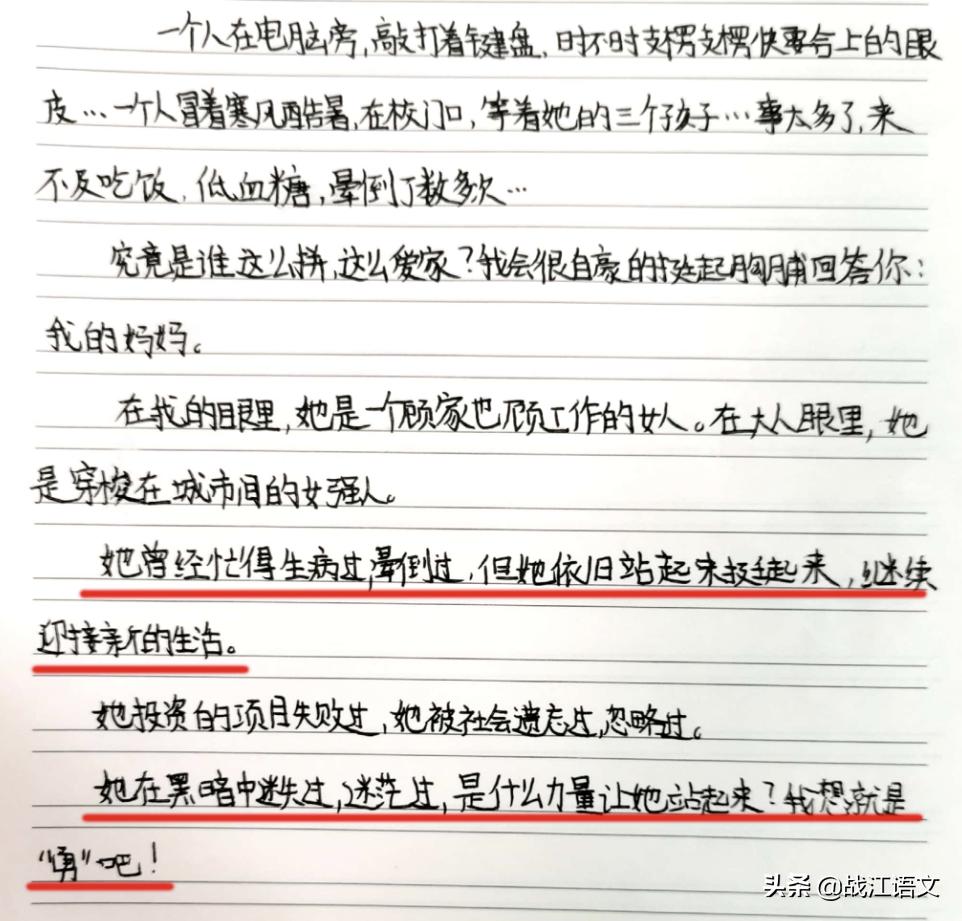 一个人在电脑旁，敲打着键盘，时不时支楞支楞快要合上的眼
皮…一个人冒着寒风酷暑，在校门口，等着她的三个孩子…事太多了，来
不及吃饭，低血糖，晕倒了数多次…
究竟是谁这么拼，这么爱家？我会很自豪的挺起胸脯回答你：
我的妈妈。
在我的眼里，她是一个顾家也顾工作的女人。在大人眼里，她
是穿梭在城市间的女强人。
她曾经忙得生病过，晕倒过，但她依旧站起来挺起来，继续
迎接新的生活。
她投资的项目失败过，她被社会遗忘过，忽略过。
她在黑暗中迷失过，迷茫过，是什么力量让她站起来？我想就是
“勇”吧！
头条 @战江语文